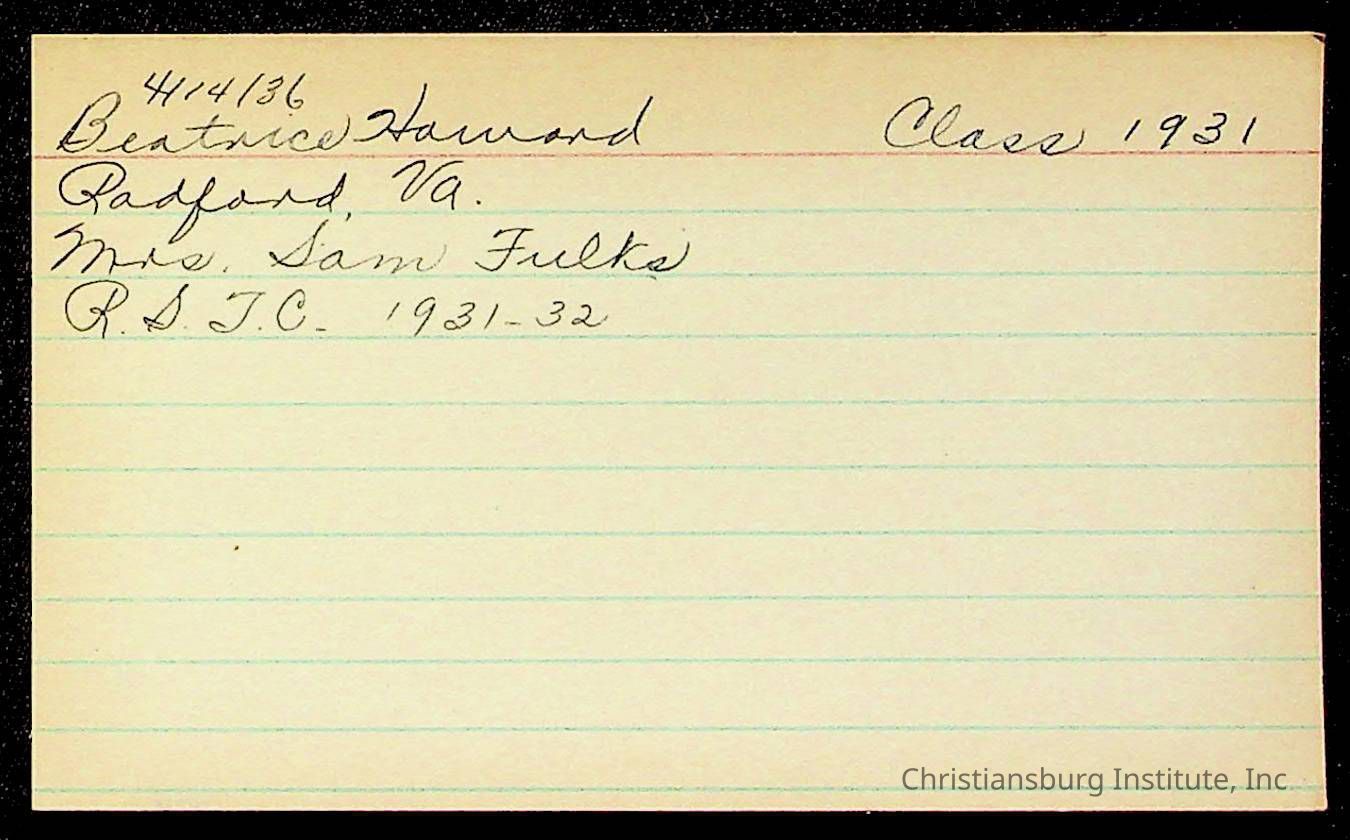 4/14/36
Beatrice Howard Class 1931
Radford, Va.
Mrs. Sam Fulks
R.S.T.C. 1931-32
Christiansburg Institute, Inc